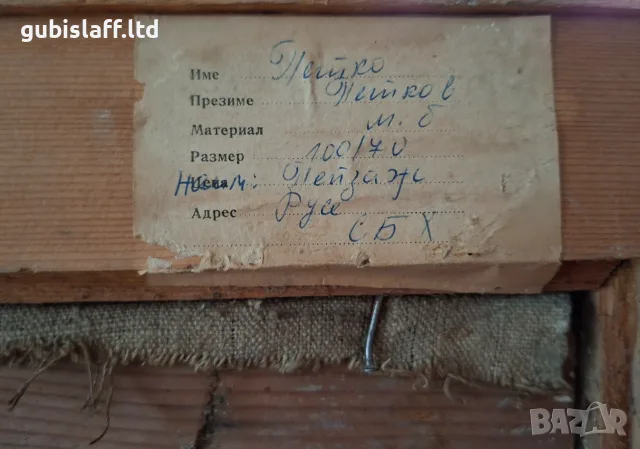 gubislaff.ltd
Име Петко
Презиме Петков
Материал м. б
Размер 100/70
Наим: Пейзаж
Адрес Русе
СБХ
BAZAR